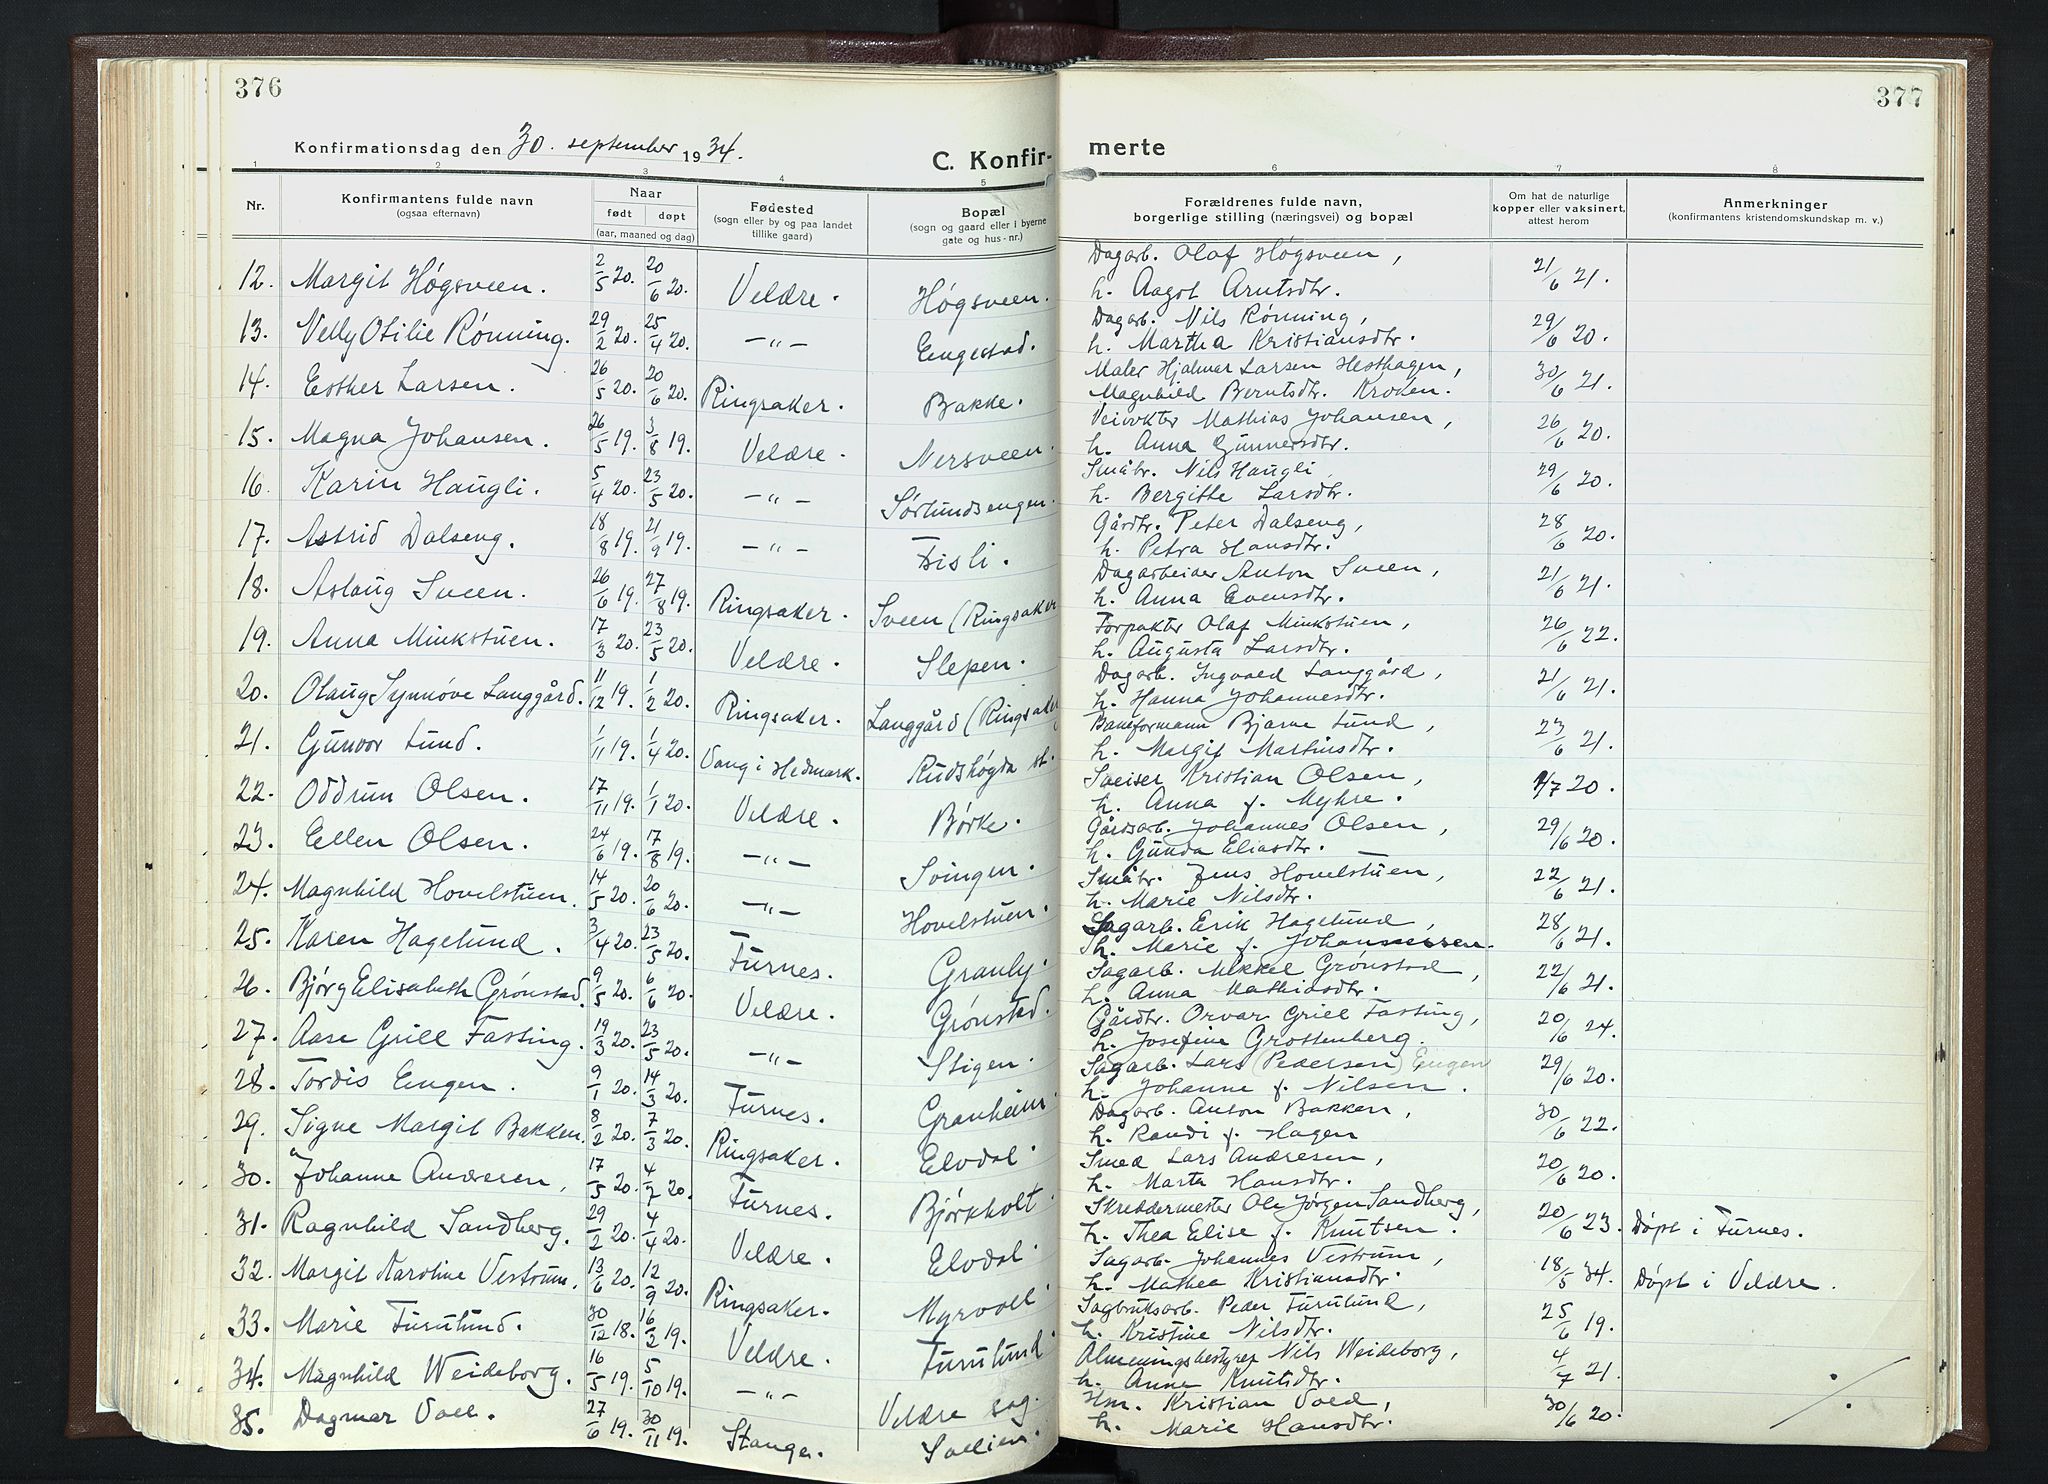 376
Konfirmationsdag den 30. september 1934.
C. Konfir-
1 2 3 4 5
Nr.
Konfirmantens fulde navn
(ogsaa efternavn)
Naar
født døpt
(aar, maaned og dag)
Fødested
(sogn eller by og paa landet
tillike gaard)
Bopæl
(sogn og gaard eller i byerne
gate og hus-nr.)
12. Margit Høgsveen. 2/5 20. 20/6 20. Veldre. Høgsveen.
13. Velly Otilie Rønning. 29/2 20. 25/4 20. —"— Engestad.
14. Esther Larsen. 26/5 20. 20/6 20. Ringsaker. Bakke.
15. Magna Johansen. 26/5 19. 3/8 19. Veldre. Nersveen.
16. Karin Haugli. 5/4 20. 23/5 20. —"— Sørlundsengen.
17. Astrid Dalseng. 18/8 19. 21/9 19. —"— Fisli.
18. Aslaug Sveen. 26/6 19. 27/8 19. Ringsaker. Sveen (Ringsaker
19. Anna Minkstuen. 17/3 20. 23/5 20. Veldre. Slepen.
20. Olaug Synnøve Langgård. 11/12 19. 1/2 20. Ringsaker. Langgård (Ringsaker
21. Gunvor Lund. 1/11 19. 1/4 20. Vang i Hedmark. Rudshøgda st.
22. Oddrun Olsen. 17/11 19. 1/1 20. Veldre. Børke.
23. Ellen Olsen. 24/6 19. 17/8 19. —"— Svingen.
24. Magnhild Hovelstuen. 14/5 20. 20/6 20. —"— Hovelstuen.
25. Karen Hagelund. 3/4 20. 23/5 20. Furnes. Granly.
26. Bjørg Elisabeth Grønstad. 9/5 20. 6/6 20. Veldre. Grønstad.
27. Aase Grill Fasting. 19/3 20. 23/5 20. —"— Stigen.
28. Tordis Engen. 9/1 20. 14/3 20. Furnes. Granheim.
29. Signe Margit Bakken. 8/2 20. 7/3 20. Ringsaker. Elvdal.
30. Johanne Andresen, 17/5 20. 4/7 20. Furnes. Bjørkholt
31. Ragnhild Sandberg. 29/2 20. 4/4 20. Veldre. Elvdal.
32. Margit Karoline Vestrum. 13/6 20. 12/9 20. Ringsaker. Myrvoll
33. Marie Furulund. 30/12 18. 16/2 19. Veldre. Furulund
34. Magnhild Weideborg. 16/5 19. 5/10 19. —"— Veldre sag.
35. Dagmar Voll. 27/6 19. 30/11 19. Stange. Sollien.
377
merte
6 7 8
Forældrenes fulde navn,
borgerlige stilling (næringsvei) og bopæl
Om hat de naturlige
kopper eller vaksinert,
attest herom
Anmerkninger
(konfirmantens kristendomskundskap m. v.)
Dagarb. Olaf Høgsveen,
h. Aagot Arntsdtr. 21/6 21.
Dagarb. Nils Rønning,
h. Martha Kristiansdtr. 29/6 20.
Maler Hjalmar Larsen Hesthagen,
Magnhild Berntsdtr. Kroken. 30/6 21.
Veivokter Mathias Johansen,
h. Anna Gunnersdtr. 26/6 20.
Småbr. Nils Haugli
h. Bergitte Larsdtr. 29/6 20.
Gårdbr. Peter Dalseng,
h. Petra Hansdtr. 28/6 20.
Dagarbeider Anton Sveen,
h. Anna Evensdtr. 21/6 21.
Forpakter Olaf Minkstuen,
h. Augusta Larsdtr. 26/6 22.
Dagarb. Ingvald Langgård,
h. Hanna Johannesdtr. 21/6 21.
Baneformann Bjarne Lund,
h. Margit Martinsdtr. 23/6 21.
Sveiser Kristian Olsen,
h. Anna f. Myhre. /7 20.
Gårdsarb. Johannes Olsen,
h. Gunda Eliasdtr. 29/6 20.
Småbr. Jens Hovelstuen,
h. Marie Nilsdtr. 22/6 21.
Sagarb. Erik Hagelund,
h. Marie f. Johannessen. 28/6 21.
Sagarb. Mikkel Grønstad,
h. Anna Mathiasdtr. 22/6 21.
Gårdbr. Orvar Grill Fasting,
h. Josefine Grottenberg. 20/6 24.
Sagarb. Lars (Pedersen) Engen
h. Johanne f. Nilsen. 29/6 20.
Dagarb. Anton Bakken,
h. Randi f. Hagen 30/6 22.
Smed Lars Andresen,
h. Marta Hansdtr. 20/6 20.
Skreddermester Ole Jørgen Sandberg,
h. Thea Elise f. Knutsen. 20/6 23. Døpt i Furnes.
Sagarb. Johannes Vestrum,
h. Mathea Kristiansdtr. 18/5 34. Døpt i Veldre.
Sagbruksarb. Peder Furulund,
h. Kristine Nilsdtr. 25/6 19.
Almenningsbestyrer Nils Weideborg,
h. Anne Knutsdtr. 4/7 21.
Hm. Kristian Vold,
h. Marie Hansdtr. 30/6 20.